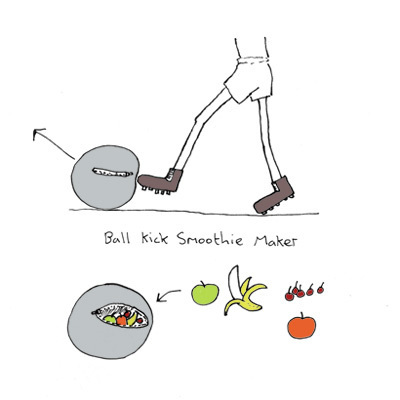 Ball Kick Smoothie Maker